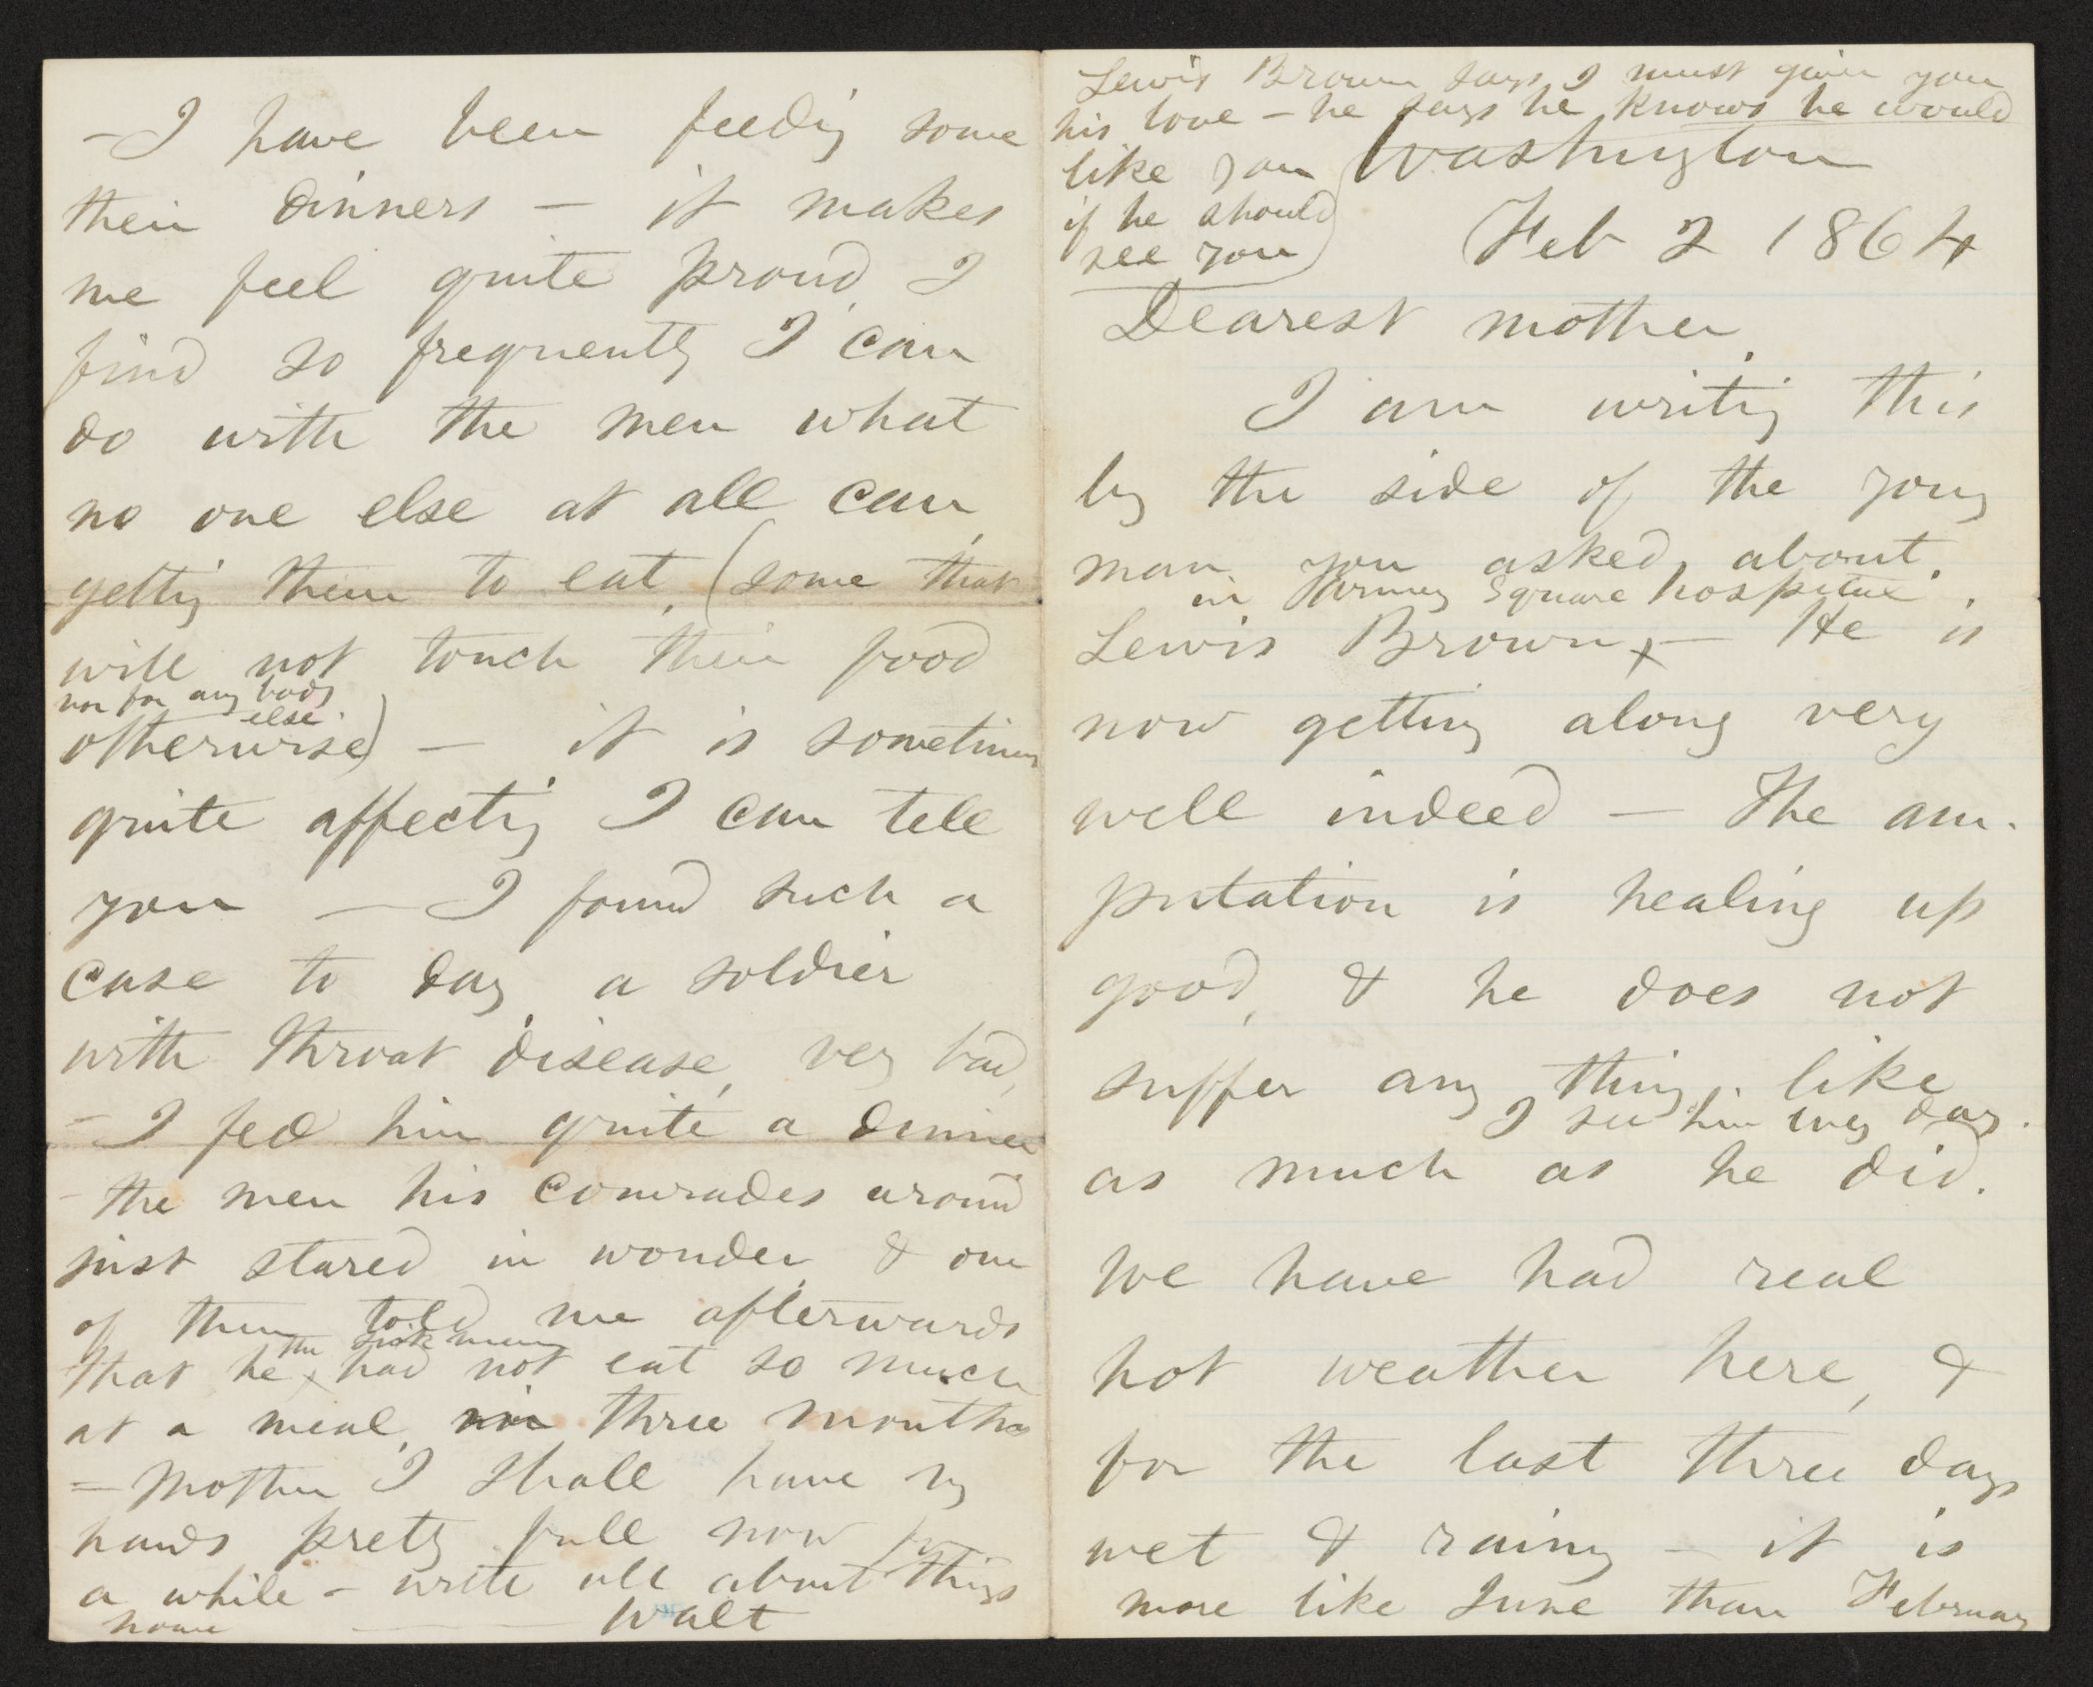 Lewis Brown says I must give you
his love — he says he knows he would
like you
if he should
see you
Washington
Feb 2 1864
Dearest mother,
I am writing this
by the side of the young
man you asked about,
in Armory Square hospital.
Lewis Brown, — He is
now getting along very
well indeed — The am-
putation is healing up
good, & he does not
suffer any thing like
I see him every day.
as much as he did.
We have had real
hot weather here, &
for the last three days
wet & rainy — it is
more like June than February
— I have been feeding some
their dinners — it makes
me feel quite proud, I
find so frequently I can
do with the men what
no one else at all can,
getting them to eat, (some that
will not touch their food
nor for any body
else.
otherwise) — it is sometimes
quite affecting I can tell
you — I found such a
case to day, a soldier
with throat disease, very bad,
— I fed him quite a dinner
— the men his comrades around
just stared in wonder, & one
of them told me afterwards
the sick man
that he had not eat so much
at a meal, in three months
— Mother I shall have my
hands pretty full now for
a while — write all about things
home
Walt